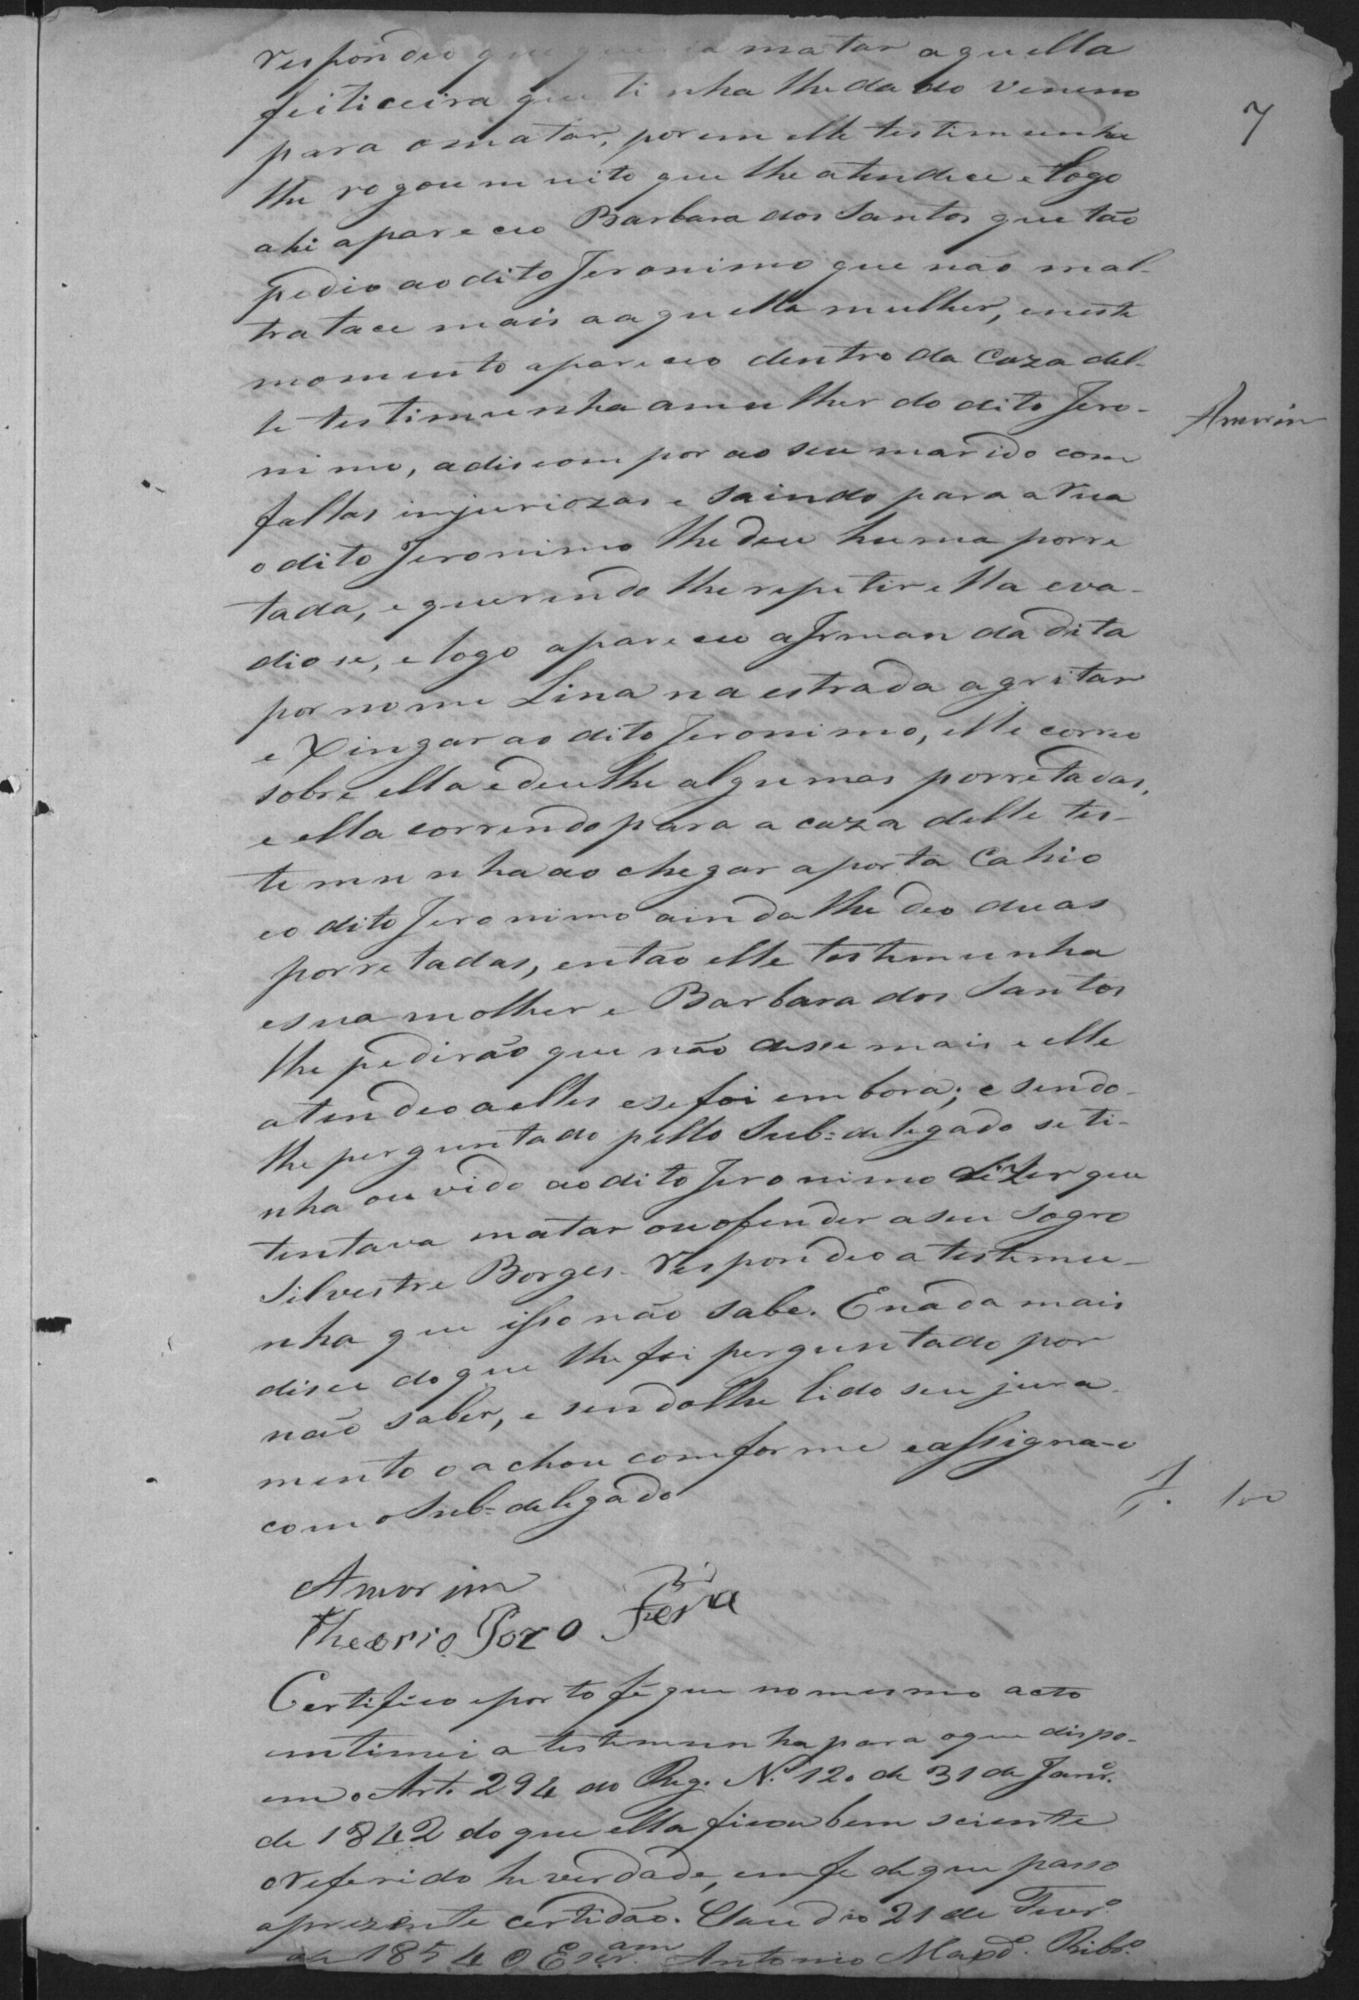 respondeo que queria matar aquella
feiticeira que tinha lhe dado veneno
para o matar, porem elle testimunha
lhe rogou muito que lhe atendece e logo
ahi apareceo Barbara dos Santos que tão
pedio ao dito Jeronimo que não mal-
tratace mais a aquella mulher, e neste
momento apareceo dentro da Caza del-
le testimunha a mulher do dito Jero-
nimo, a discompor ao seu marido com
fallas injuriozas e saindo para a rua
o dito Jeronimo lhe deu huma porre
tada, e querendo lhe repetir ella eva-
diose, e logo apareceu a Irman da dita
por nome Lina na estrada a gritar
e Xingar ao dito Jeronimo, elle correo
sobre ella e deu lhe algumas porretadas,
e ella correndo para a caza delle tes-
temunha ao chegar a porta Cahio
e o dito Jeronimo ainda lhe deo duas
porretadas, então elle testemunha
e sua molher e Barbara dos Santos
lhe pedirão que não desse mais e elle
atendeo a elles e se foi embora; e sendo-
lhe perguntado pello Sub=delegado se ti-
nha ouvido ao dito Jeronimo diZer que
tentava matar ou ofender a seu Sogro
Silvestre Borges. respondeo a testemu-
nha que isso não sabe. E nada mais
disce do que lhe foi perguntado por
não saber, e sendolhe lido seu jura-
mento o achou comforme e assigna-o
com o Sub=delegado
Amorim
Theorio Pozo Ferra
Certifico e porto fé que no mesmo acto
entimei a testemunha para o que dispo-
em o Art. 294 do Reg. N.º 120 de 31 de Janr.º
de 1842 do que ella ficou bem sciente
o referido he verdade, em fe de que passo
a prezente certidão. Claudio 21 de Fever.º
de 1854 O Escr.am Antonio Maxd.º Ribr.º
7
Amorim
J. 100